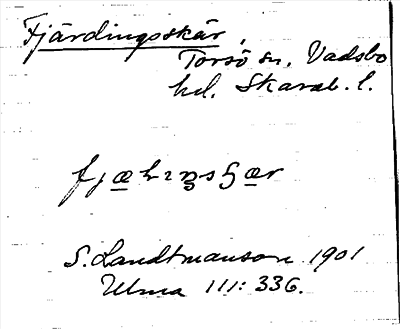 Fjärdingsskär,
Torsö sn. Vadsbo
hd. Skarab. l.
S. Landtmanson 1901
Ulma 111: 336.